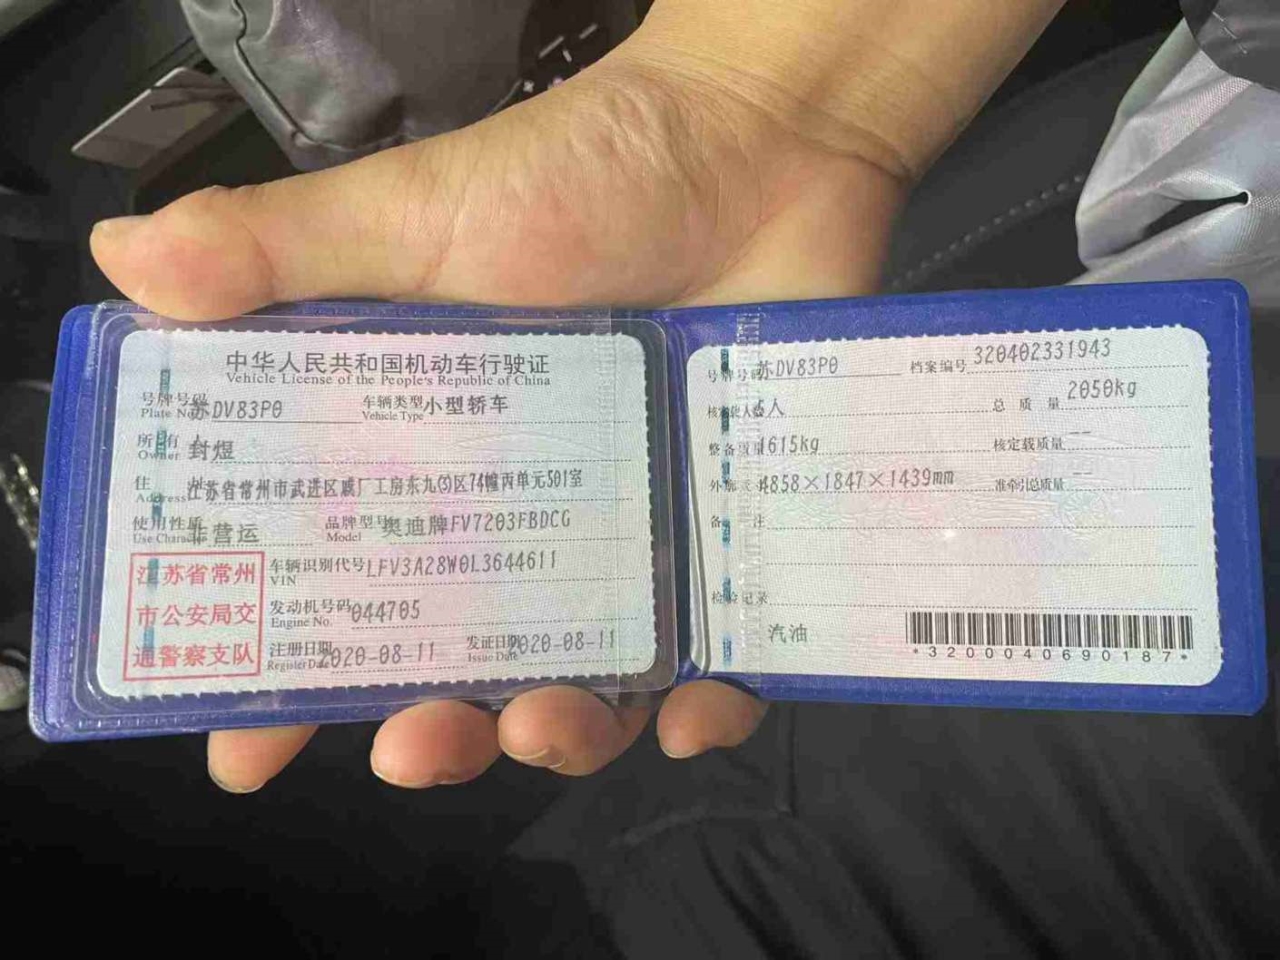 中华人民共和国机动车行驶证
Vehicle License of the People's Republic of China
号牌号码 苏DV83P0 车辆类型 小型轿车
Plate No. Vehicle Type
所有人 封煜
Owner
住址 江苏省常州市武进区戚厂工房东九(3)区74幢丙单元501室
Address
使用性质 非营运 品牌型号 奥迪牌FV7203FBDCG
Use Character Model
江苏省常州
市公安局交
通警察支队
车辆识别代号 LFV3A28W0L3644611
VIN
发动机号码 044705
Engine No.
注册日期 2020-08-11 发证日期 2020-08-11
Register Date Issue Date
号牌号码 苏DV83P0 档案编号 320402331943
核定载人数 5人 总质量 2050kg
整备质量 1615kg 核定载质量 --
外廓尺寸 4858×1847×1439mm 准牵引总质量 --
备注
检验记录
汽油
*3200040690187*